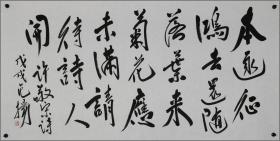 本逐征
鴻去還随
落葉来
菊花應
未滿請
待詩人
開 许敬宗詩
戊戌